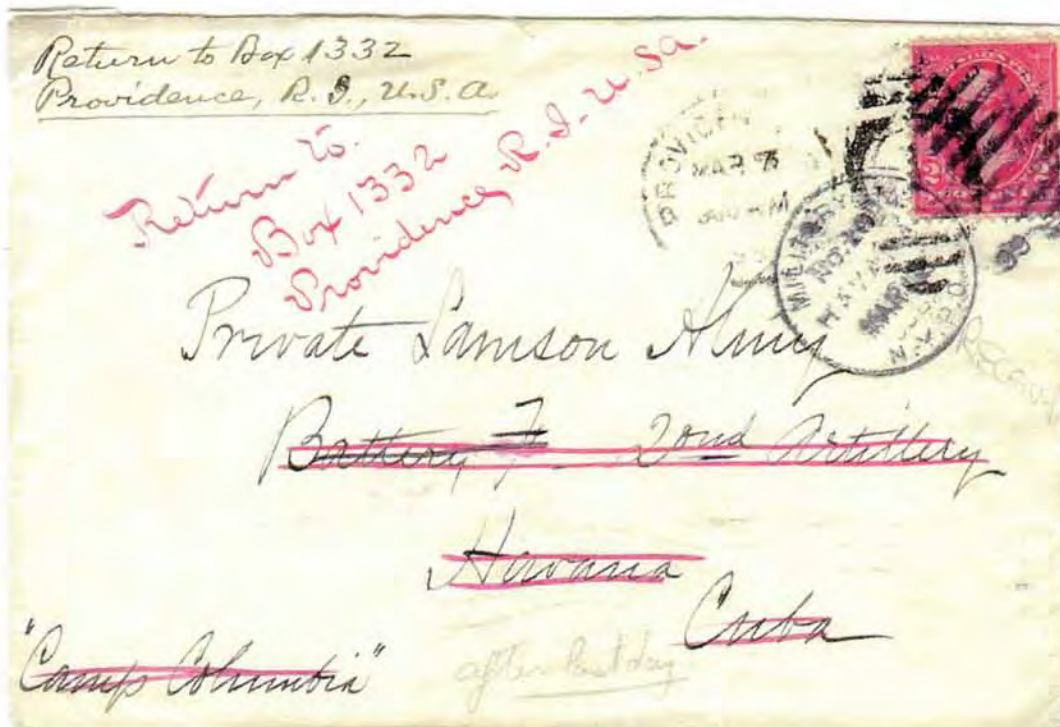 Return to Box 1332
Providence, R. I., U.S.A.
Return to.
Box 1332
Providence R.I. U.S.a.
PROVIDEN
MAR
MILITARY
NO.
MAR
N.Y.P.O.
2
RECEIV
Private Lamson Almy
Battery F 2ond Artillery
Havana
Cuba
"Camp Columbia"
after